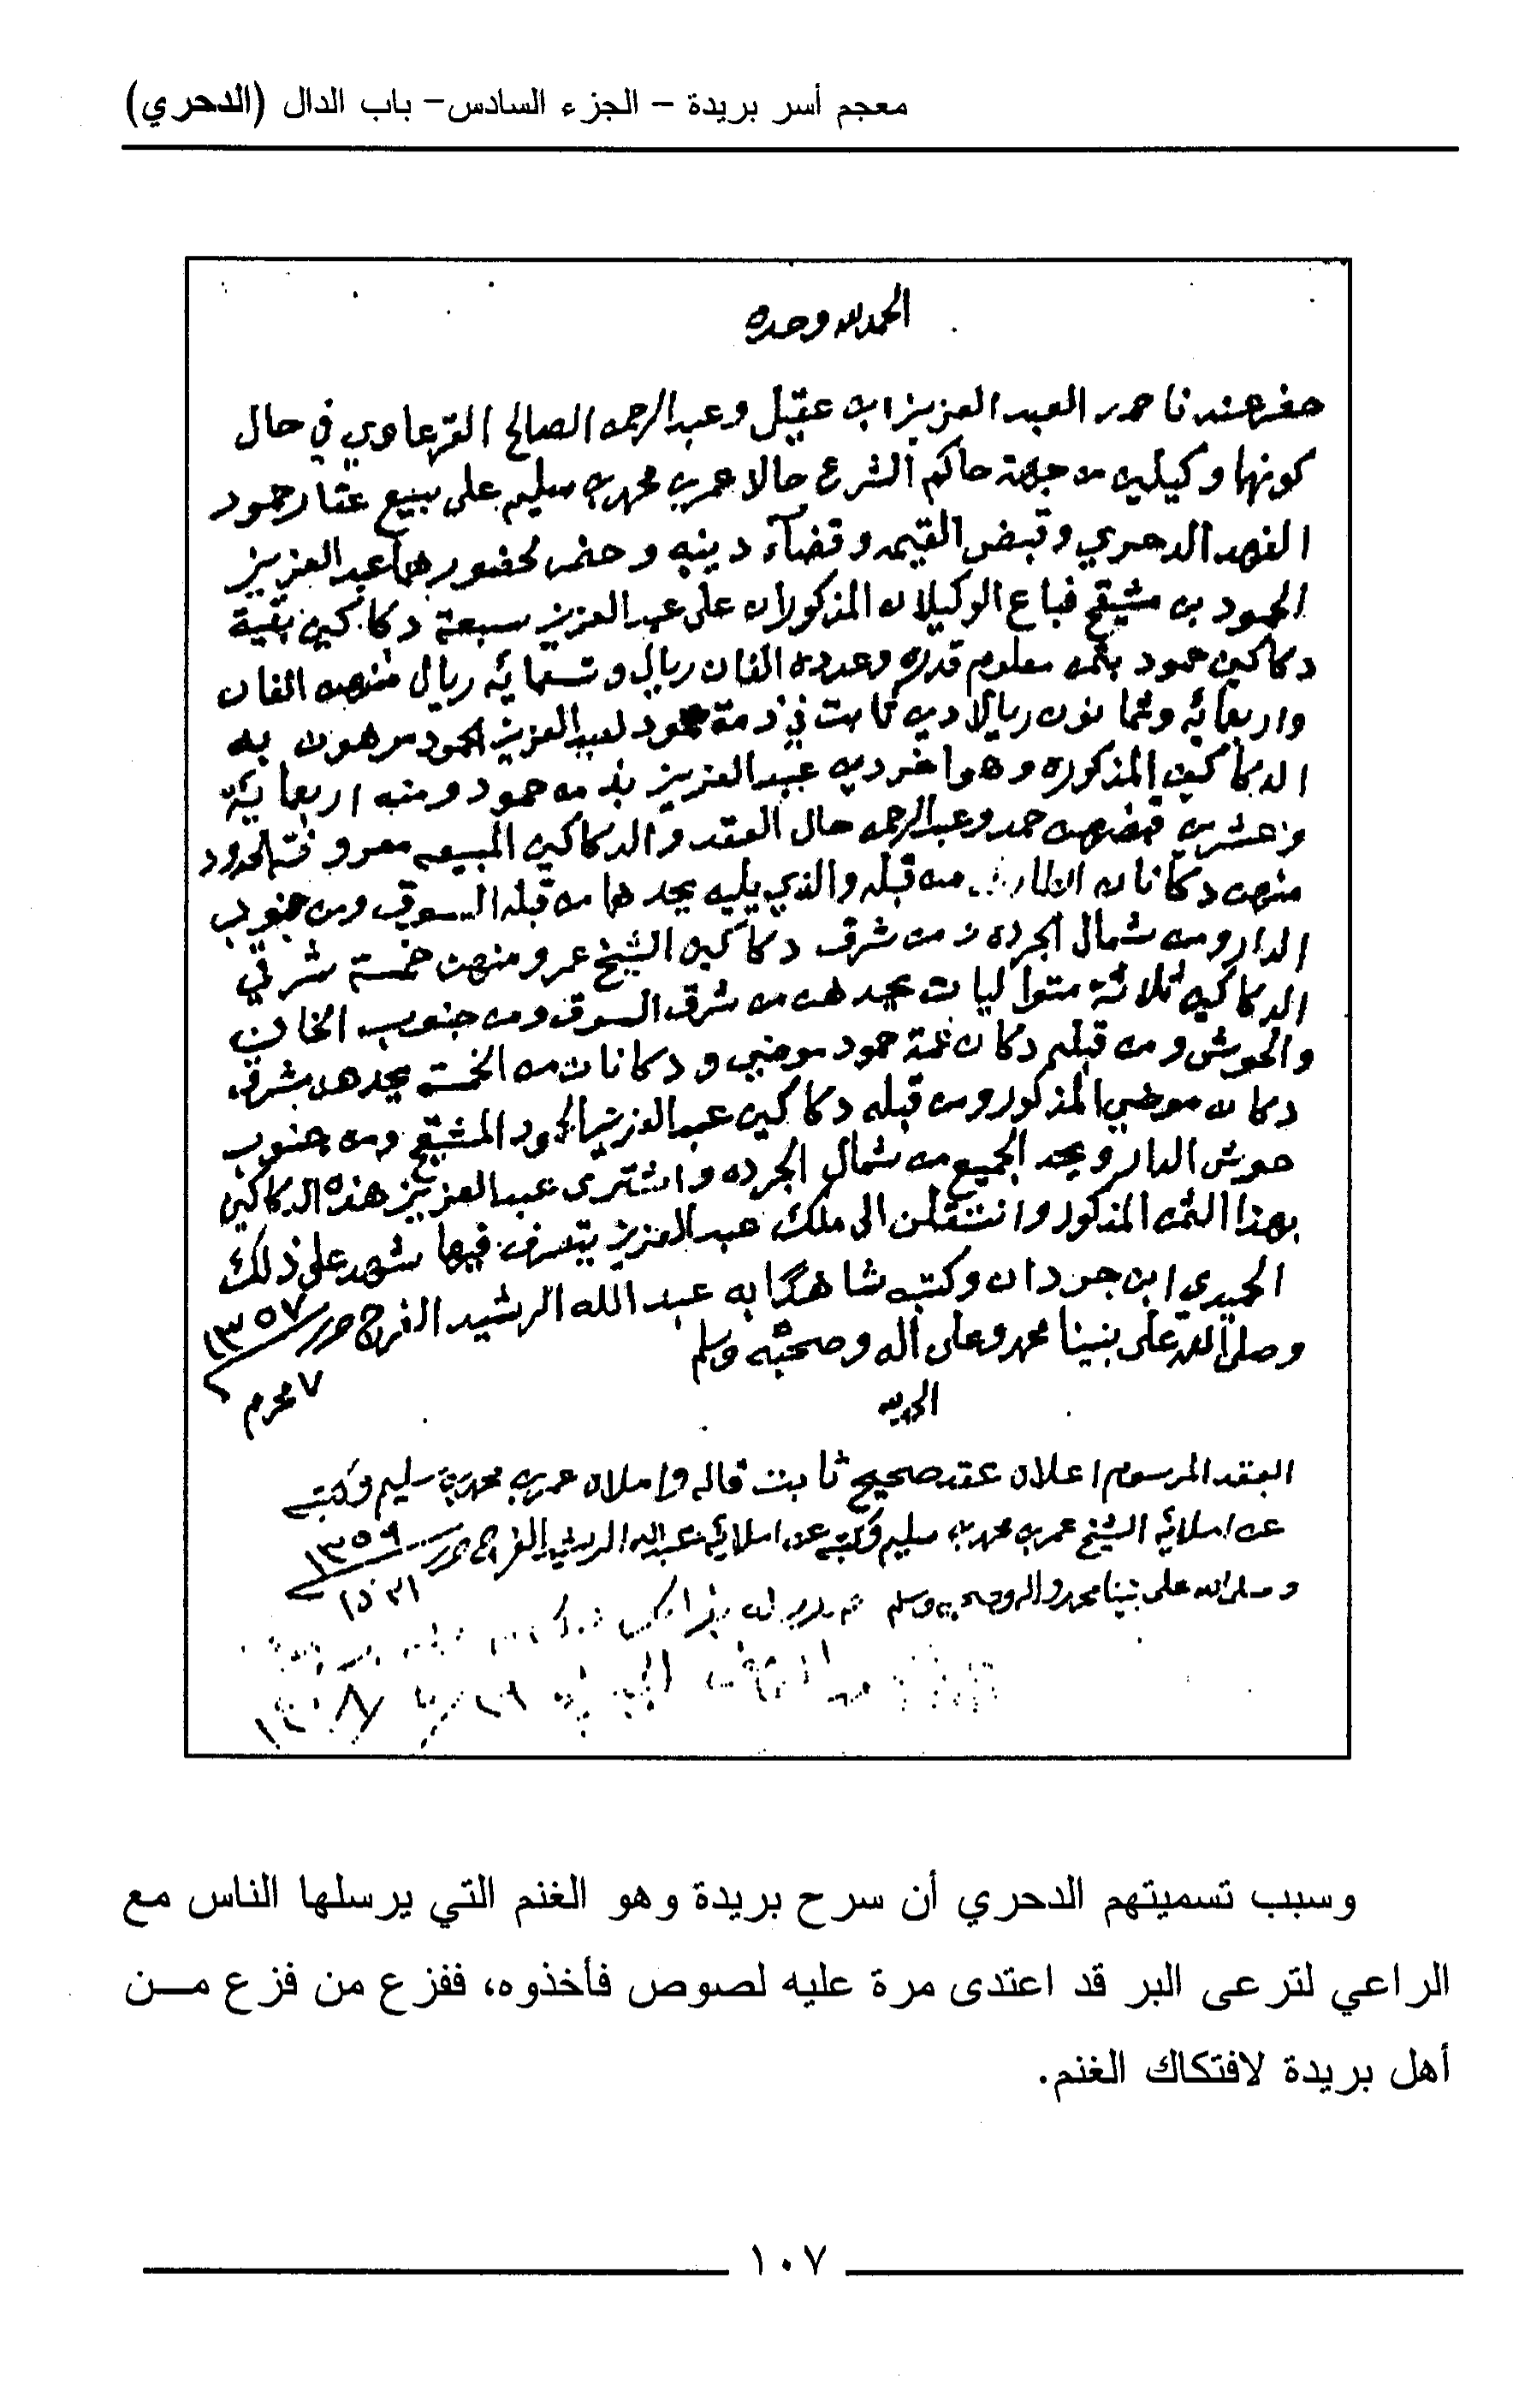 معجم أسر بريدة – الجزء السادس– باب الدال (الدحري)
الحمد لله وحده
حضر عندنا حمد العبد العزيز ابن عقيل وعبد الرحمن الصالح القرعاوي في حال
كونهما وكيلين من جهة حاكم الشرع حالا عمر بن محمد بن سليم على بيع عقار حمود
الفهد الدحري وقبض القيمه وقضآء دينه وحضر لحضورهما عبد العزيز
الحمود بن مشيقح فباع الوكيلان المذكوران على عبد العزيز سبعة دكاكين بقية
دكاكين حمود بثمن معلوم قدره وعدده الفان ريال وتسعمايه ريال منهن الفان
واربعمايه وثمانون ريالا دين ثابت في ذمة حمود لعبد العزيز الحمود مرهون به
الدكاكين المذكوره وهو اخر دين عبد العزيز بذمه حمود ومنه اربعماية
وعشرين قبضهن حمد وعبد الرحمن حال العقد والدكاكين المبيعه معروفة الحدود
منهن دكانان من قبله والذي يليه يحدهما من قبله السوق ومن جنوب
الدار ومن شمال الجرده ومن شرق دكاكين الشيخ عمر ومنهن خمسة شرقي
الدكاكين ثلاثة متواليات يحدهن من شرق السوق ومن جنوب الخان
والحوش ومن قبله دكان عمة حمود موضي ودكانان من الخمسة يحدهن بشرق
دكان موضي المذكور ومن قبله دكاكين عبد العزيز الحمود المشيقح ومن جنوب
حوش الدار ويحد الجميع من شمال الجرده واشترى عبد العزيز هذه الدكاكين
بهذا الثمن المذكور وانتقلن الى ملك عبد العزيز يتصرف فيها شهد على ذلك
الحميدي ابن جردان وكتبه شاهدا به عبد الله الرشيد الفرج حرر ١٣٥٧
وصلى الله على نبينا محمد وعلى آله وصحبه وسلم
٧ محرم
الحمد لله
العقد المرسوم اعلاه عقد صحيح ثابت قاله واملاه عمر بن محمد بن سليم وكتبه
عن املائه الشيخ عمر بن محمد بن سليم وكتبه عن املائه عبد الله الرشيد الفرج حرر ١٣٥٩
وصلى الله على نبينا محمد واله وصحبه وسلم
وسبب تسميتهم الدحري أن سرح بريدة وهو الغنم التي يرسلها الناس مع
الراعي لترعى البر قد اعتدى مرة عليه لصوص فأخذوه، ففزع من فزع مـــن
أهل بريدة لافتكاك الغنم.
١٠٧